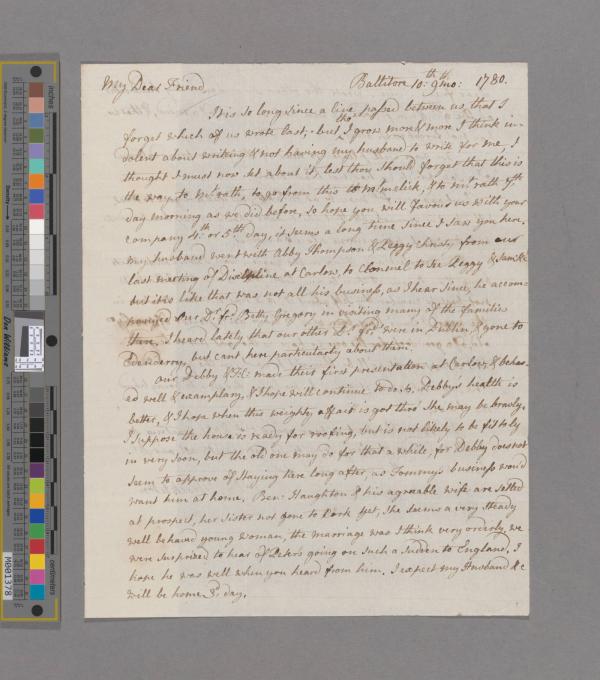 My Dear Friend
Ballitore 10th 9th mo: 1780.
It is so long since a line passed between us, that I
forget which of us wrote last; but tho' I grow more & more I think in-
dolent about writing & not having my husband to write for me, I
thought I must now set about it, lest thou should forget that this is
the way to Mt rath, to go from this to & to Mt rath 7th
day morning as we did before, so hope you will favour us with your
company 4th or 5th day, it seems a long time since I saw you here.
my husband went with Abby Thompson & Peggy Christy from our
last meeting of Discipline at Carlow, to Clonmel to see Peggy &
but it is like that was not all his business, as I hear since, he accom-
panied our Dr. fr. Betty Gregory in visiting many of the families
there, I heard lately that our other Dr. frds were in Dublin & gone to
Edenderry, but cant here particularly about them.
our Debby & made their first presentation at Carlow, & behav-
ed well & examplary, & I hope will continue to do so, Debbys health is
better, & I hope when this weighty affair is got thro' she may be bravly.
I suppose the house is ready for roofing, but is not likely to be fit to ly
in very soon, but the old one may do for that a while, for Debby does not
seem to approve of staying here long after, as Tommys business would
want him at home. Ben: Haughton & his agreable wife are setled
at prospect, her sister not gone to Cork yet, she seems a very steady
well behaved young woman, the marriage was I think very orderly, we
were surprized to hear of Peters going on such a sudden to England, I
hope he was well when you heard from him. I expect my Husband &c
will be home 3d day.
inches
centimetres
Don Williams
M001378